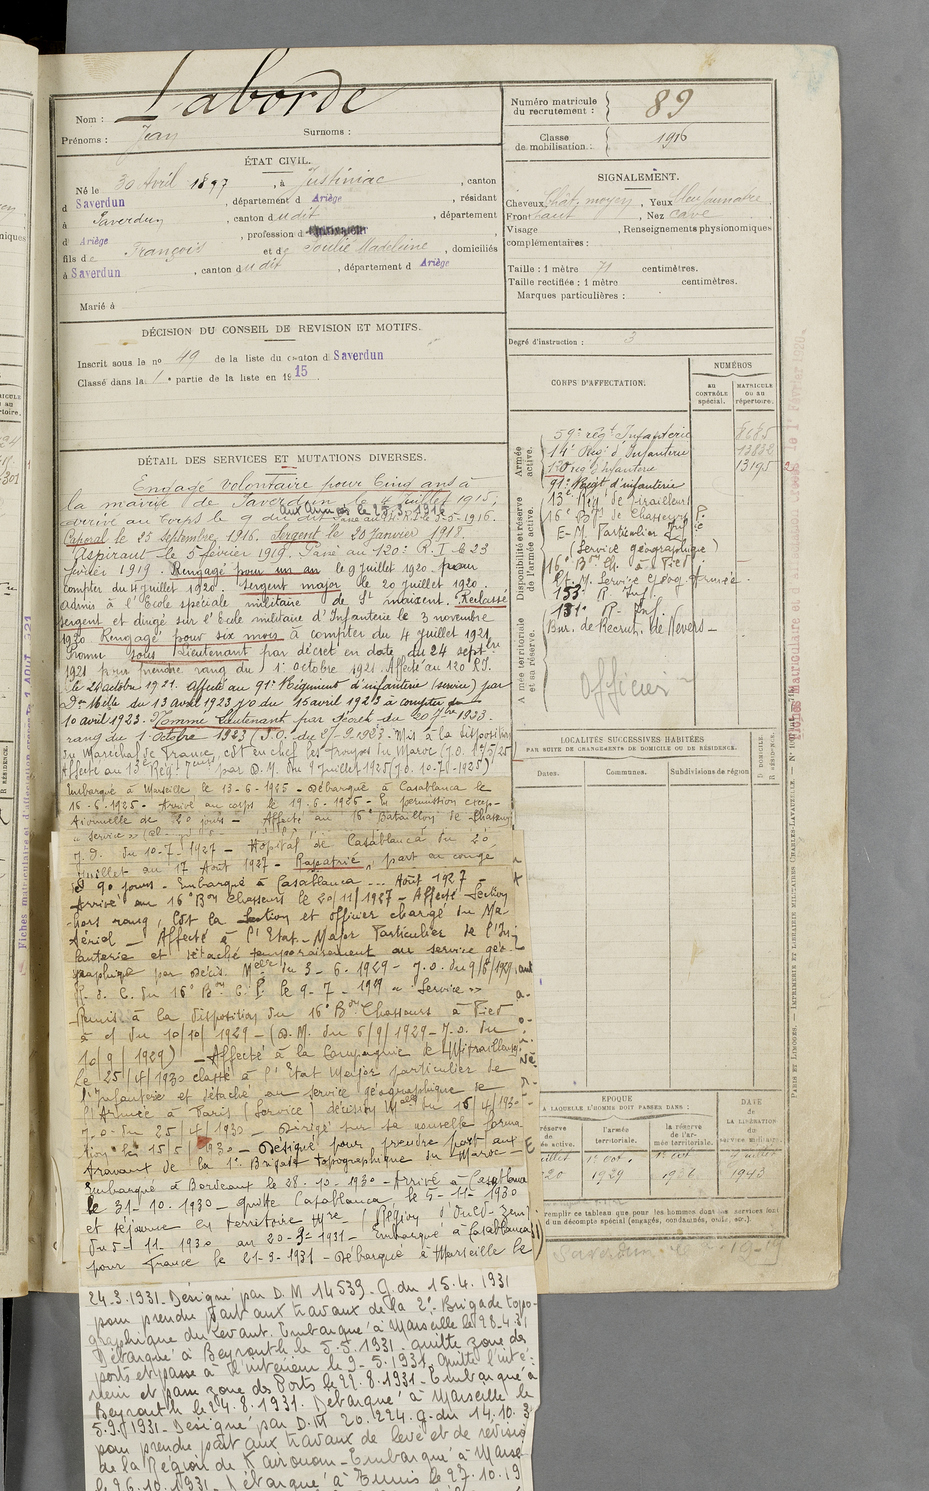 Nom : Laborde
Prénoms : Jean Surnoms :
ÉTAT CIVIL.
Né le 30 Avril 1897, à Justiniac, canton
d Saverdun, département d Ariège, résidant
à Saverdun, canton dudit, département
d' Ariège, profession d
fils de François et de Soulié Madeleine, domiciliés
à Saverdun, canton dudit, département d Ariège
Marié à
DÉCISION DU CONSEIL DE REVISION ET MOTIFS.
Inscrit sous le no 49 de la liste du canton d Saverdun
Classé dans la 1e partie de la liste en 1915
DÉTAIL DES SERVICES ET MUTATIONS DIVERSES.
Engagé volontaire pour Cinq ans à
la mairie de Saverdun le 4 juillet 1915,
arrivé au corps le 9 du dit aux armées le 25.3.1916
Caporal le 25 septembre 1916. Sergent le 20 janvier 1918.
Aspirant le 5 février 1919. Passé au 120e R.I. le 23
février 1919. Rengagé pour un an le 9 juillet 1920 pour
compter du 4 juillet 1920. Sergent major le 20 juillet 1920.
Admis à l'Ecole spéciale militaire de St maixent. Reclassé
sergent et dirigé sur l'Ecole militaire d'Infanterie le 3 novembre
1920 Rengagé pour six mois à compter du 4 juillet 1921
Promu sous Lieutenant par décret en date du 24 septbre
1921 pour prendre rang du 1er octobre 1921. Affecté au 120e R.I.
le 28 octobre 1921. Affecté au 91e Régiment d'infanterie (service) par
Don Melle du 13 avril 1923 J.O du 15 avril 1923 à compter du
10 avril 1923. Nomme Lieutenant par décret du 20 7bre 1923.
rang du 1 Octobre 1923 (J.O. du 27-9-1923. Mis à la disposition
du Maréchal de France, cdt en chef les troupes du Maroc
Affecté au 13e Régt par D.M. du 9 juillet 1925 (J.O. 10-7-1925)
Embarqué à Marseille le 13-6-1925 - Débarqué à Casablanca le
16-6-1925 - Arrivé au corps le 19-6-1925 - En permission excep-
tionnelle de 20 jours - Affecté au 16e Bataillon de Chasseurs
J.O. du 10-7-1927 - Hopital de Casablanca du 20
juillet au 17 Août 1927 - Rapatrié, part en congé
de 90 jours - Embarqué à Casablanca ... Août 1927 -
Arrivé au 16e Bon Chasseurs le 20/11/1927 - Affecté Section
hors rang, Cdt la Section et officier chargé du Ma
tériel - Affecté à l'Etat-Major Particulier de l'In
fanterie et détaché temporairement au service géo
graphique par décis. Melle du 3-6-1929 - J.O. du 9/6/1929
R. d. C. du 16e Bon C. P. le 9-7-1929 "Service"
Remis à la disposition du 16e Bon Chasseurs à Pied
à d du 10/10/1929 - (D.M. du 6/9/1929 - J.O. du
10/9/1929) - Affecté à la Compagnie de Mitrailleuses
Le 25/4/1930 classé à l'Etat Major particulier de
l'Infanterie et détaché au service géographique de
l'Armée à Paris (Service) décision Melle du 16/4/1930
J.O. du 25/4/1930 - Dirigé sur sa nouvelle forma
tion le 15/5/1930 - Désigné pour prendre part aux
travaux de la 1e Brigade topographique du Maroc -
Embarqué à Bordeaux le 28-10-1930 - Arrivé à Casablanca
le 31-10-1930 - quitte Casablanca le 5-11-1930
et séjourne en territoire Mre (Région d'Oued-Zem)
du 5-11-1930 au 20-3-1931 - Embarqué à Casablanca
pour France le 21-3-1931 - Débarqué à Marseille le
24.3.1931 - Désigné par D.M 14539. G. du 15.4.1931
pour prendre part aux travaux de la 2e Brigade topo-
graphique du Levant. Embarqué à Marseille le 28.4.31
Débarqué à Beyrouth le 5.5.1931 - quitte zone des
ports et passe à l'intérieur le 9-5.1931. Quitte l'inté-
rieur et passe zone des Ports le 22.8.1931 - Embarqué à
Beyrouth le 24.8.1931. Débarqué à Marseille le
5.9.1931 - Désigné par D.M 20.224. G. du 14.10.3
pour prendre part aux travaux de levé et de révisio
de la Région de Kairouan - Embarqué à Marse
le 26.10.1931 - Débarqué à Tunis le 27.10.19
Numéro matricule du recrutement : 89
Classe de mobilisation : 1916
SIGNALEMENT.
Cheveux Chât. moyen, Yeux bleu
Front haut, Nez cave
Visage , Renseignements physionomiques
complémentaires :
Taille : 1 mètre 71 centimètres.
Taille rectifiée : 1 mètre centimètres.
Marques particulières :
Degré d'instruction : 3
CORPS D'AFFECTATION.
NUMÉROS
AU CONTRÔLE spécial.
MATRICULE OU AU répertoire.
Armée active.
59e régt Infanterie 8685
14e Régt d'Infanterie 13832
120 régt Infanterie 13195
91e Régt d'infanterie
Disponibilité et réserve de l'armée active.
13e Rég de Tirailleurs
16e Bon de Chasseurs P.
E-M. Particulier Infie
(Service géographique)
16e Bon Ch. à Pied
E/t. M. Service géog Armée.
153e R Inf.
131e R. Inf.
Armée territoriale et sa réserve.
Bur. de Recrut. de Nevers -
Officier
LOCALITÉS SUCCESSIVES HABITÉES
PAR SUITE DE CHANGEMENTS DE DOMICILE OU DE RÉSIDENCE.
Dates. Communes. Subdivisions de région D. DOMICILE. R. RÉSIDENCE.
EPOQUE
A LAQUELLE L'HOMME DOIT PASSER DANS :
l'armée territoriale.
la réserve de l'armée territoriale.
DATE de LA LIBÉRATION du service militaire.
1929 1936 1943
remplir ce tableau que pour les hommes dont les services font
d'un décompte spécial (engagés, condamnés, omis, etc.).
PARIS ET LIMOGES. — IMPRIMERIE ET LIBRAIRIE MILITAIRES CHARLES-LAVAUZELLE.